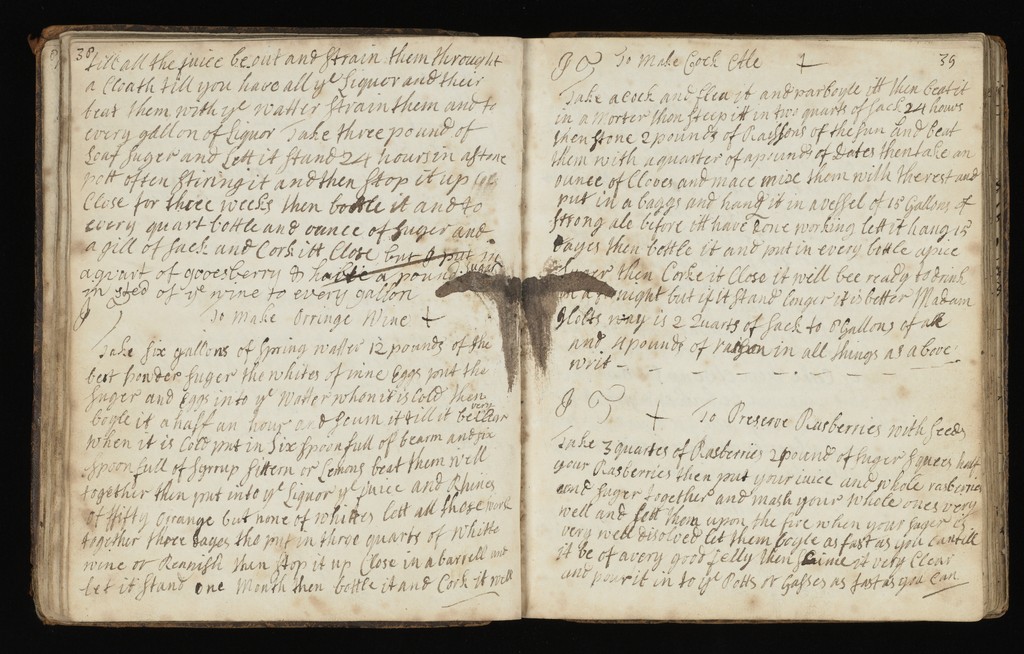 38
till all the juice be out and strain them throught
a Cloath till you have all ye Liquor and their
beat them with ye watter strain them and to
every gallon of Liquor Take three pound of
Loaf suger and Lett it stand 24 hours in a stone
pott often stiring it and then stop it up
Close for three weeks then bottle it and to
every quart bottle and ounce of suger and
a gill of sack and Cork itt Close but I put in
a quart of goosesberry & have a pound sugar
in sted of ye wine to every gallon
To make Orringe Wine +
Take six gallons of spring watter 12 pounds of the
best powder suger the whites of nine Eggs putt the
suger and Eggs into ye watter when it is Cold then
boyle it a haft an hour and scum it till it be very Clear
when it is Cold put in six spoonfull of bearm and six
spoonfull of Syrrup sittern or Lemons beat them well
together then put into ye Liquor ye juice and Rhines
of fifty orange but none of whittes Lett all these work
together three dayes tho put in three quarts of whitte
wine or Reanish then stop it up Close in a barrell and
let it stand one Month then bottle it and Cork it well
39
To Make Cock Elle +
Take a cock and flea it and parboyle itt then beat it
in a Morter then steep itt in two quarts of sack 24 hours
then stone 2 pounds of Raissons of the sun and beat
them with a quarter of a pound of Dates then take an
ounce of Cloves and mace mixe them with the rest and
put in a bagg and hand it in a vessel of 15 Gallons of
strong ale before itt have done working lett it hang 15
dayes then bottle it and put in every bottle a pice
suger then Corke it Close it will bee ready to drink
in a but if it stand longer it is better Madam
way is 2 quarts of sack to 8 Gallons of ale
and 4 pounds of in all things as above
writ
+ To Preserve Rasberries with seeds
Take 3 quartes of Rasberries 2 pound of suger squees half
your Rasberries then put your juice and whole rasberries
and suger together and mash your whole ones very
well and sett them upon the fire when your suger is
very well disolved let them boyle as fast as you can till
it be of a very good Jelly then it very Clear
and pour it in to ye Potts or Gasses as fast as you Can